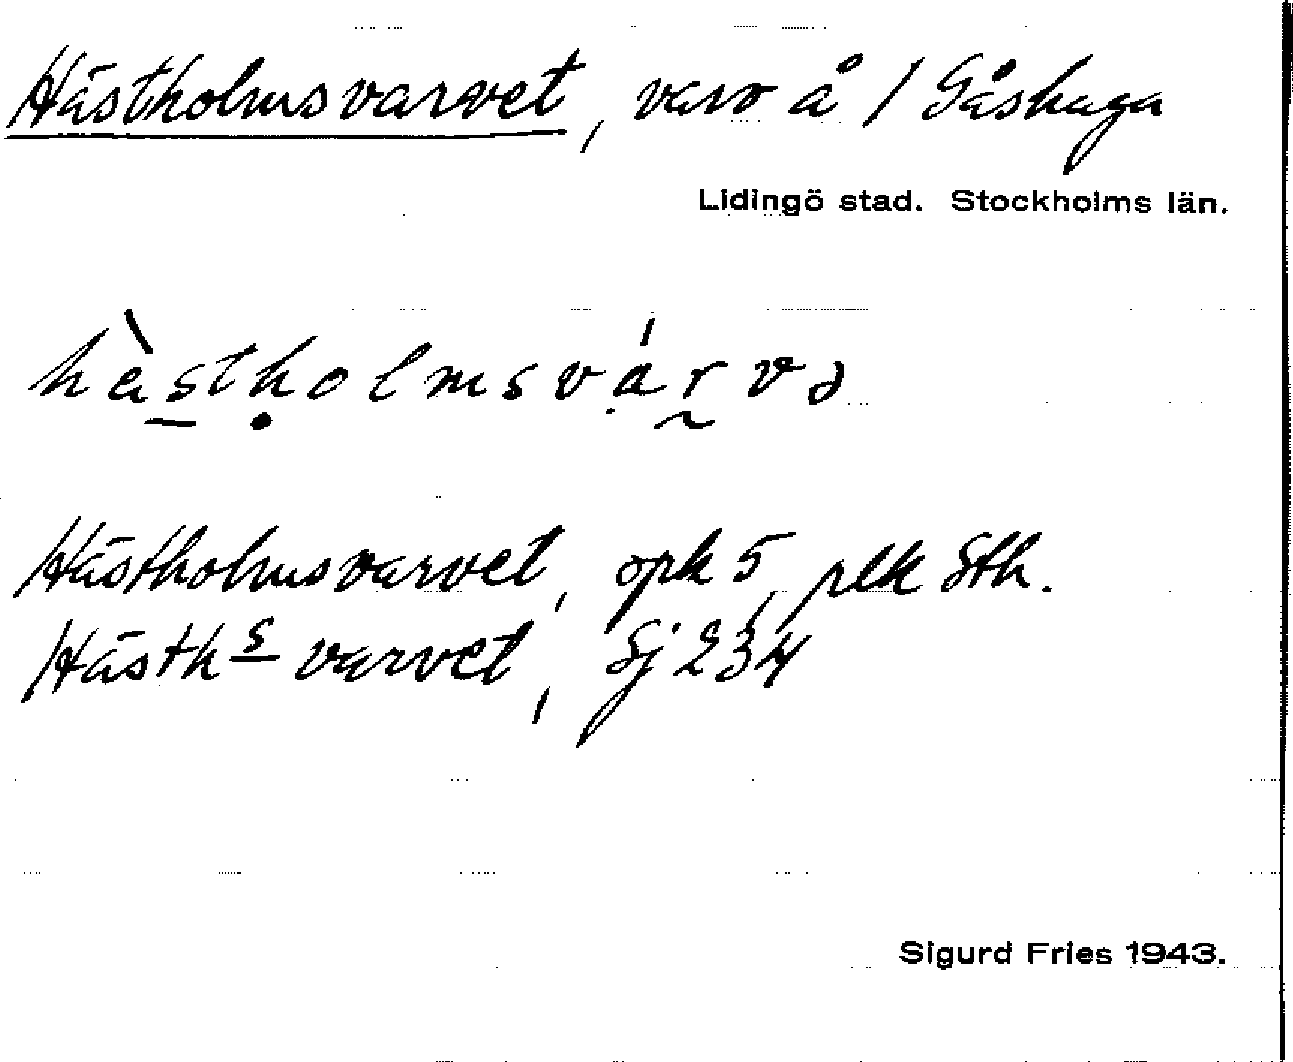 Hästholmsvarvet, varv å / Gåshaga
Lidingö stad. Stockholms län.
hàstḥolmsvárvə
Hästholmsvarvet, opk 5, plk Sth.
Häsths varvet, Sj 234
Sigurd Fries 1943.